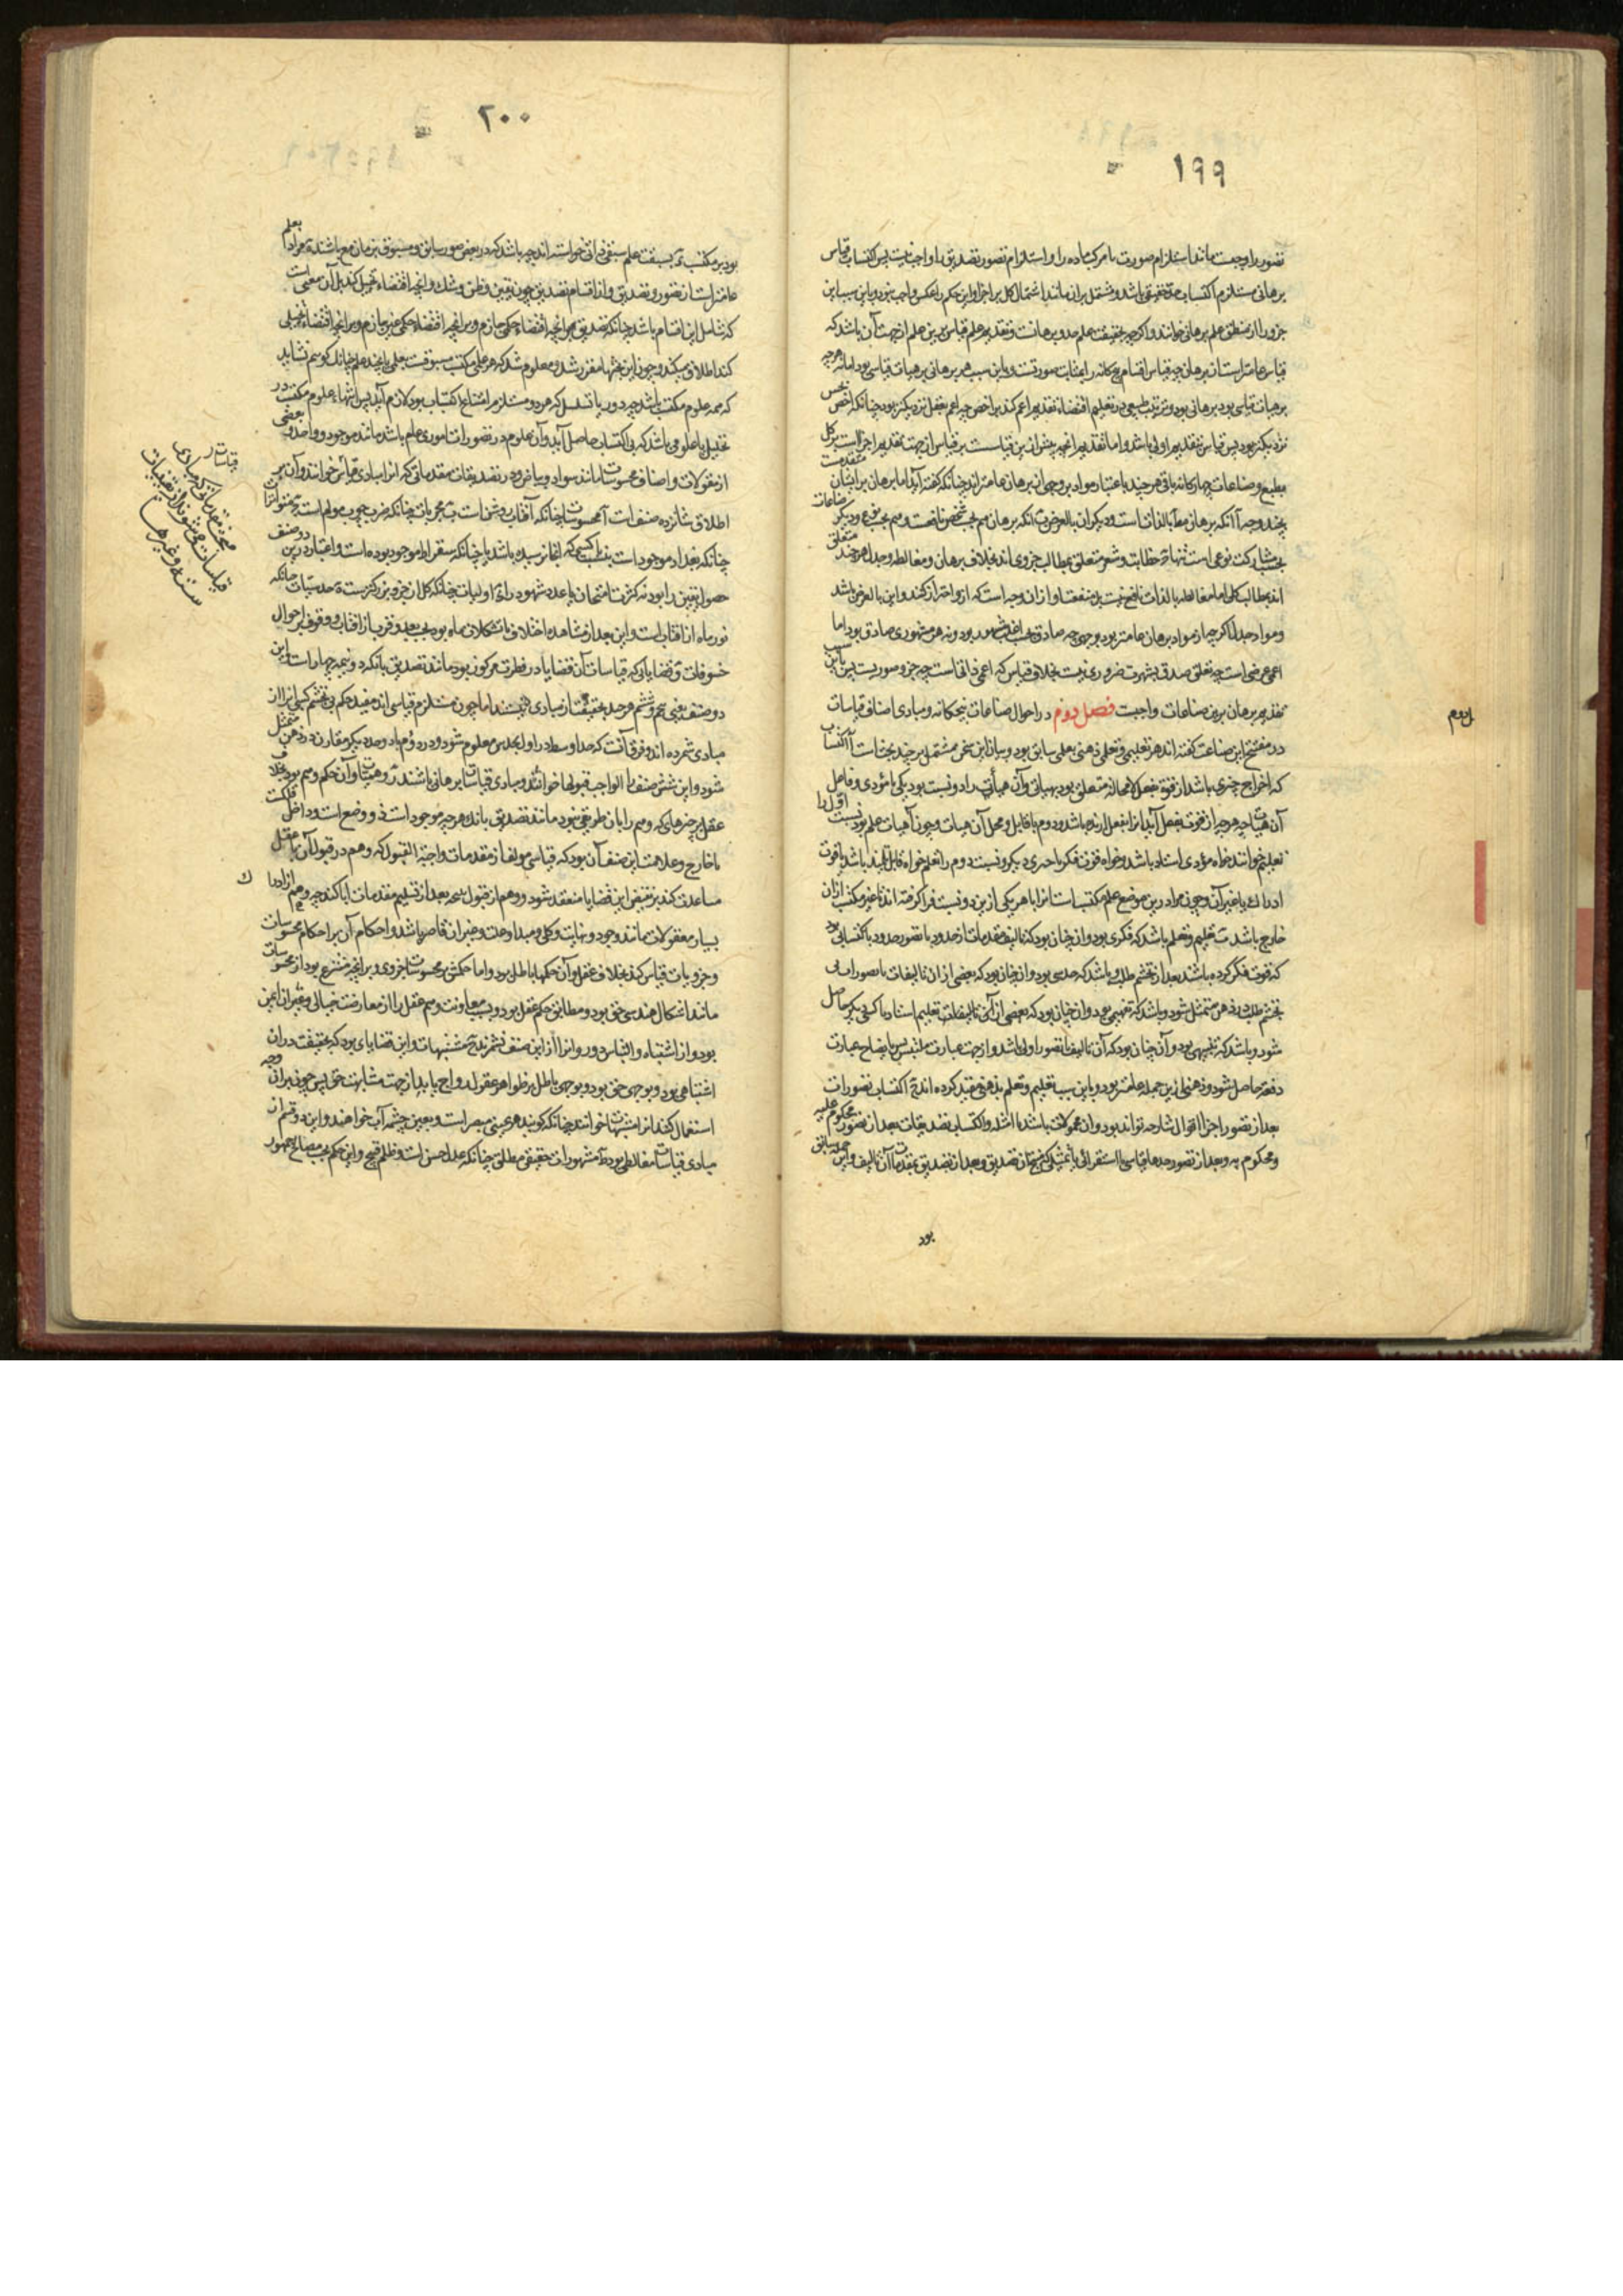 ۱۹۹
تصور را واجبست مانند استلزام صورت با مرکب ماده را و استلزام تصور تصدیق را واجب نیست پس اکتساب قیاس
برهانی مستلزم اکتساب حد حقیقی باشد و مشتمل بر آن مانند اشتمال کل بر اجزا و این حکم را عکس واجب نبود و باین سبب این
جزو را از منطق علم برهانی خوانند و اگرچه بحقیقت علم حد و برهانست و تقدیم علم قیاس برین علم از جهت آن باشد که
قیاس عامتر است از برهانی چه قیاس اقسام پنجگانه را بمثابت صورتست و باین سبب هر برهانی بر هیأت قیاسی بود اما نه هرچه
بر هیأت قیاسی بود برهانی بود و ترتیب طبیعی در تعلیم اقتضاء تقدیم اعم کند بر اخص چه اعم بعقل نزدیکتر بود چنانکه اخص بحس
نزدیکتر بود پس قیاس بتقدیم اولی باشد و اما تقدیم آنچه پیش از قیاس است بر قیاس از جهت تقدیم اجزاست بر کل
بطبع و صناعات چهارگانه باقی هر چند باعتبار مواد بر وجهی از برهان عامتراند چنانکه گفته آید اما برهان بر ایشان متقدمست
بچند وجه آ آنکه برهانی معاً بالذات است و دیگران بالعرض ب آنکه برهان هم بحسب شخص نافعست و هم بحسب نوع و دیگر صناعات
بحسب مشارکت نوعی است تنها ج خطابت و شعر متعلق بمطالب جزوی‌اند بخلاف برهان و مغالطه و جدل هر چند متعلق
اند بمطالب کلی اما مغالطه بالذات نافع نیست بل منفعت او از آن وجه است که از او احتراز کنند و این بالعرض باشد
و مواد جدل اگرچه از مواد برهان عامتر بود بوجهی چه صادق بحسب اغلب مشهور بود و نه هر مشهوری صادق بود اما
اعمی عرضی است چه تعلق صدق بشهرت ضروری نیست بخلاف قیاس که اعمی ذاتی است چه جزو صوریست پس باین سبب
تقدیم برهان برین صناعات واجبست فصل دوم در احوال صناعات پنجگانه و مبادی اصناف قیاسات
در مفتتح این صناعت گفته‌اند هر تعلیمی و تعلمی ذهنی بعلمی سابق بود و بیان این سخن مشتمل بر چند بحث است آ اکتساب
که اخراج چیزی باشد از قوت بفعل لامحاله متعلق بود بهیأتی و آن هیأتی را دو نسبت بود یکی با مؤدی و فاعل
آن هیأت چه هرچه از قوت بفعل آید آنرا بفعل آرنده باشد و دوم با قابل و محل آن هیأت و چون آن هیأت علم بود نسبت اول را
تعلیم خوانند خواه مؤدی استاد باشد و خواه قوت فکر یا چیزی دیگر و نسبت دوم را تعلم خواه قابل تلمیذ باشد یا قوت
ادراک یا غیر آن و چون مراد درین موضع علم مکتسب است آنرا با هر یکی ازین دو نسبت فراگرفته‌اند تا غیر مکتسب از آن
خارج باشد ب تعلیم و تعلم باشد که فکری بود و آن چنان بود که تألیف مقدمات از حدود یا تصور حدود باکتسابی بود
که قوت فکر کرده باشد بعد از تجشم طلب و باشد که حدسی بود و آن چنان بود که بعضی از آن تألیفات یا تصورات بی
تجشم طلب در ذهن متمثل شود و باشد که تفهیمی بود و آن چنان بود که بعضی از آن تألیفات بتعلیم استاد یا کسی دیگر حاصل
شود و باشد که تنبیهی بود و آن چنان بود که آن تألیف یا تصور اولی باشد و از جهت عبارت ملتبس پس بایضاح عبارت
دفعة حاصل شود و ذهنی ازین جمله عامتر بود و باین سبب تعلیم و تعلم بذهنی مقید کرده‌اند ج اکتساب تصورات
بعد از تصور اجزاء اقوال شارحه تواند بود و آن محمولات باشد یا امثله و اکتساب تصدیقات بعد از تصور محکوم علیه
و محکوم به و بعد از تصور حدها قیاسی یا استقرائی یا تمثیلی که منتج آن تصدیق و بعد از تصدیق بمقدمات آن تألیف و این جمله سابق
بود
ل دوم
۲۰۰
بود بر مکتسب د بسبقت علم سبقی ذاتی خواسته‌اند چه باشد که در بعضی صور سابق و مسبوق بزمان مع باشند ه مراد بعلم
عامتر است از تصور و تصدیق و از اقسام تصدیق چون یقین و ظن و شک و آنچه اقتضاء تخییل کند بل آن معنی است
که شامل این اقسام باشد چنانکه تصدیق بر آنچه اقتضاء حکمی جازم و بر آنچه اقتضاء حکمی غیر جازم و بر آنچه اقتضاء تخییلی
کند اطلاق میکنند و چون این بحثها مقرر شد و معلوم شد که هر علمی مکتسب مسبوقست بعلمی یا بچند علم چنانکه گوئیم نشاید
که همه علوم مکتسب باشد چه دور یا تسلسل که هر دو مستلزم امتناع اکتساب بود لازم آید پس انتهاء علوم مکتسب در
تحلیل با علومی باشد که بی اکتساب حاصل آید و آن علوم در تصورات اموری عام باشد مانند موجود و واحد و بعضی
از مقولات و اصناف محسوسات مانند سواد و بیاض و در تصدیقات مقدماتی که آنرا مبادی قیاس خوانند و آن بر
اطلاق شانزده صنف است آ محسوسات چنانکه آفتاب روشن است ب مجربات چنانکه ضرب چوب مولم است ج متواترات
چنانکه بغداد موجود است بنسبت با کسی که آنجا نرسیده باشد یا چنانکه سقراط موجود بوده است و اعتبار درین دو صنف
حصول یقین را بود نه کثرت امتحان یا عدد شهود را د اولیات چنانکه کل از جزو بزرگتر است ه حدسیات چنانکه
نور ماه از آفتاب است و این بعد از مشاهده اختلاف تشکلات ماه بود بحسب بعد و قرب از آفتاب و وقوف بر احوال
خسوفات و قضایائی که قیاسات آن قضایا در فطرت مرکوز بود مانند تصدیق بآنکه دو نیمه چهار است و این
دو صنف یعنی پنجم و ششم هر چند بحقیقت از مبادی نیستند اما چون مستلزم قیاسی‌اند مفید حکم بی تجشم کسبی آنرا از
مبادی شمرده‌اند و فرق آنست که حد اوسط در اول بحدس معلوم شود و در دوم با دو حد دیگر مقارن در ذهن متمثل
شود و این شش صنف را الواجب قبولها خوانند و مبادی قیاسات برهانی باشند ز وهمیات و آن حکم وهم بود بخلاف
عقل بر چیزهائی که وهم را بآن طریقی نبود مانند تصدیق بآنکه هرچه موجود است ذو وضع است و داخل فلکست
یا خارج و علامت این صنف آن بود که قیاسی مؤلف از مقدمات واجبة القبول که وهم در قبول آن با عقل
مساعدت کند بر نقیض این قضایا منعقد شود و وهم از قبول نتیجه بعد از تسلیم مقدمات ابا کند چه وهم از ادراک
بسیار معقولات مانند وجود و نهایت و کلی و مبدأ و وحدت و غیر آن قاصر باشد و احکام آن بر احکام محسوسات
و جزویات قیاس کند بخلاف عقل و آن حکمها باطل بود و اما حکمش بر محسوسات جزوی و بر آنچه منتزع بود از محسوسات
مانند اشکال هندسی حق بود و مطابق حکم عقل بود و بسبب معاونت وهم عقل را از معارضت خیالی و غیر آن ایمن
بود و از اشتباه و التباس دور و آنرا از این صنف نشمرند ح مشبهات و این قضایائی بود که بحقیقت در آن
اشتباهی بود و بوجهی حق بود و بوجهی باطل بر ظواهر عقول رواج یابد از جهت مشابهت حق پس چون بر آن وجه
استعمال کنند آنرا مشبهات خوانند چنانکه گویند هر عینی مبصر است و بعین چشمه آب خواهند و این دو قسم از
مبادی قیاسات مغالطی بود ط مشهورات حقیقی مطلق چنانکه عدل حسن است و ظلم قبیح و این حکم بحسب مصالح جمهور